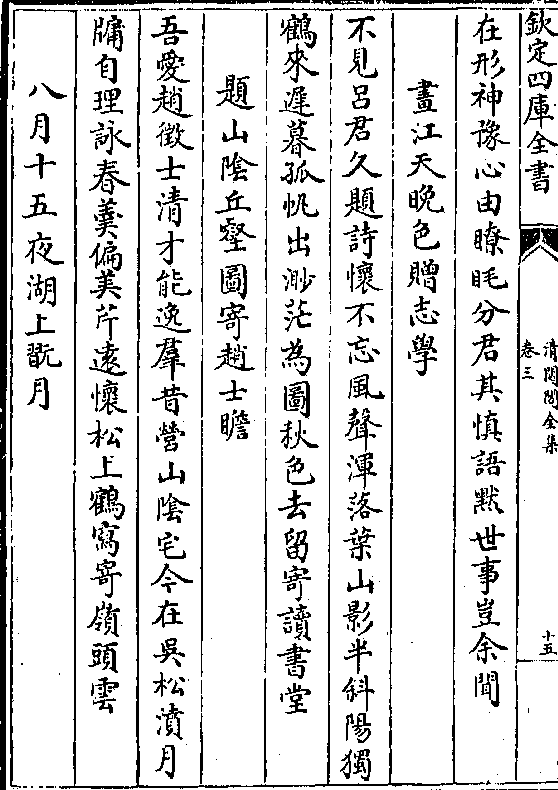 欽定四庫全書
清閟閣全集
卷三
十五
在形神豫心由瞭眊分君其慎語默世事豈余聞
畫江天晚色贈志學
不見呂君久題詩懷不忘風聲渾落葉山影半斜陽獨
鶴來遲暮孤帆出渺茫為圖秋色去留寄讀書堂
題山陰丘壑圖寄趙士瞻
吾愛趙徵士清才能逸羣昔營山陰宅今在吳松濆月
牗自理詠春羹偏美芹遠懷松上鶴寫寄嶺頭雲
八月十五夜湖上翫月